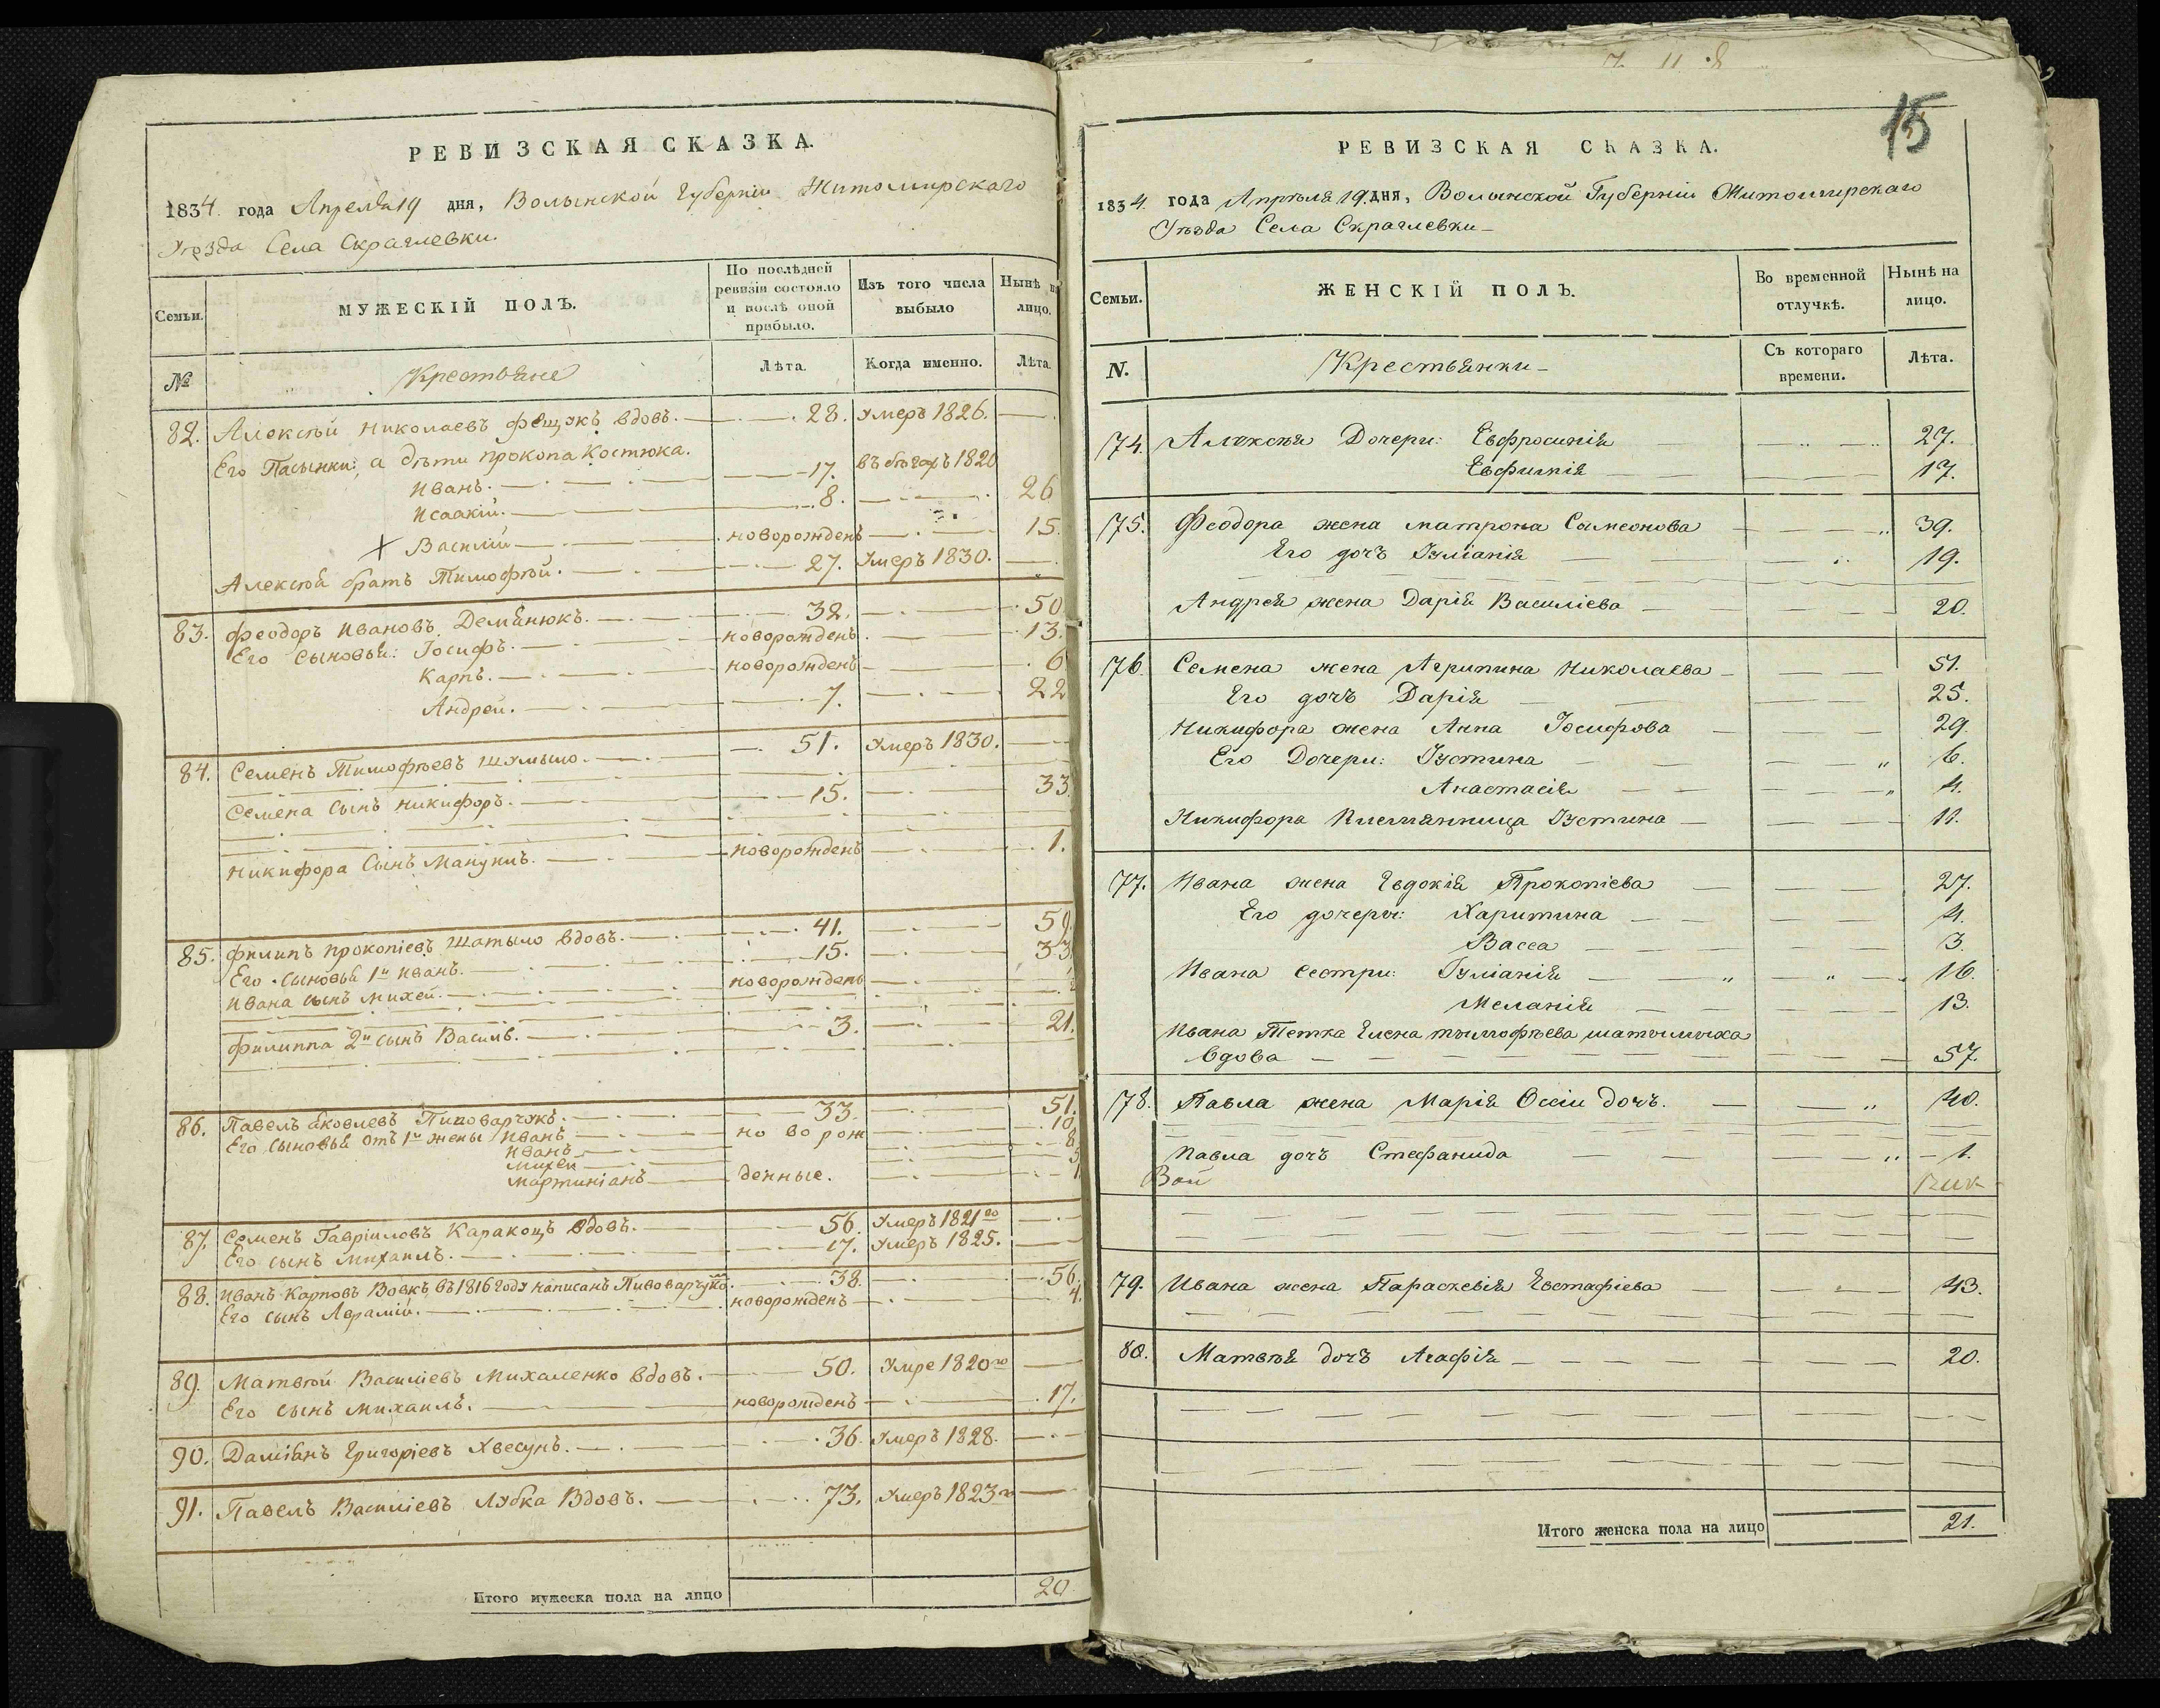 РЕВИЗСКАЯ СКАЗКА.
1834. года Апреля 19 дня, Волынской Губернiи Житомирскаго
Уѣзда Села Скраглевки.
Семьи.
МУЖЕСКIЙ ПОЛЪ.
По послѣдней ревизiи состояло и послѣ оной прибыло.
Изъ того числа выбыло
Нынѣ на лицо.
№
Крестьяне
Лѣта.
Когда именно.
Лѣта.
82. Алексѣй Николаевъ Фещукъ вдовъ. 28. Умеръ 1826.
Его Пасынки, а дѣти Прокопа Костюка.
Иванъ. 17. въ бѣгахъ 1820
Исаакiй. 8. 26
+ Василiй новорожденъ 15.
Алексѣя братъ Тимофѣй. 27. Умеръ 1830.
83. Феодоръ Ивановъ Демянюкъ. 32. 50.
Его Сыновья: Iосифъ. новорожденъ. 13.
Карпъ. новорожденъ 6
Андрей. 7. 22
84. Семенъ Тимофѣевъ Шумыло. 51. Умеръ 1830.
Семена Сынъ Никифоръ. 15. 33.
Никифора Сынъ Мануилъ. новорожденъ 1.
85. Филипъ Прокопiевъ Шатыло вдовъ. 41. 59.
Его Сыновья 1й Иванъ. 15. 33
Ивана сынъ Михей. новорожденъ
Филиппа 2й сынъ Василь. 3. 21.
86. Павелъ Яковлевъ Пивоварчукъ. 33. 51.
Его Сыновья отъ 1й жены Иванъ но во рож 10.
Иванъ 8.
Михей 5
Мартинiанъ денные. 1.
87. Семенъ Гаврiиловъ Каракоцъ вдовъ. 56. Умеръ 1821го
Его сынъ Михаилъ. 17. Умеръ 1825.
88. Иванъ Карповъ Вовкъ, въ 1816 году написанъ Пивоварчукъ. 38. 56.
Его сынъ Аврамiй. новорожденъ 4.
89. Матвѣй Василiевъ Михаленко вдовъ. 50. Умре 1820го
Его сынъ Михаилъ. новорожденъ 17.
90. Дамiанъ Григорiевъ Хвесунъ. 36. Умеръ 1828.
91. Павелъ Василiевъ Лубка Вдовъ. 73. Умеръ 1823го
Итого мужеска пола на лицо 20
15
РЕВИЗСКАЯ СКАЗКА.
1834. года Апрѣля 19. дня, Волынской Губернiи Житомирскаго
Уѣзда Села Скраглевки
Семьи.
ЖЕНСКIЙ ПОЛЪ.
Во временной отлучкѣ.
Нынѣ на лицо.
N.
Крестьянки
Съ котораго времени.
Лѣта.
74. Алексѣя Дочери: Евфросинiя 27.
Евфимiя 17.
75. Феодора жена Матрона Симеонова 39.
Его дочъ Iулiанiя 19.
Андрея жена Дарiя Василiева 20.
76. Семена жена Агрипина Николаева 51.
Его дочъ Дарiя 25.
Никифора жена Анна Iосифова 29.
Его Дочери: Iустина 6.
Анастасiя 4.
Никифора Племянница Iустина 11.
77. Ивана жена Евдокiя Прокопiева 27.
Его дочери: Харитина 4.
Васса 3.
Ивана Сестри: Iулiанiя 16.
Меланiя 13.
Ивана Тетка Елена Тимофѣева Шатылиха
вдова 57.
78. Павла жена Марiя Осiи дочъ. 40.
Павла дочъ Стефанида 1.
Вой
79. Ивана жена Параскевiя Евстафiева 43.
80. Матвѣя дочъ Агафiя 20.
Итого женска пола на лицо 21.